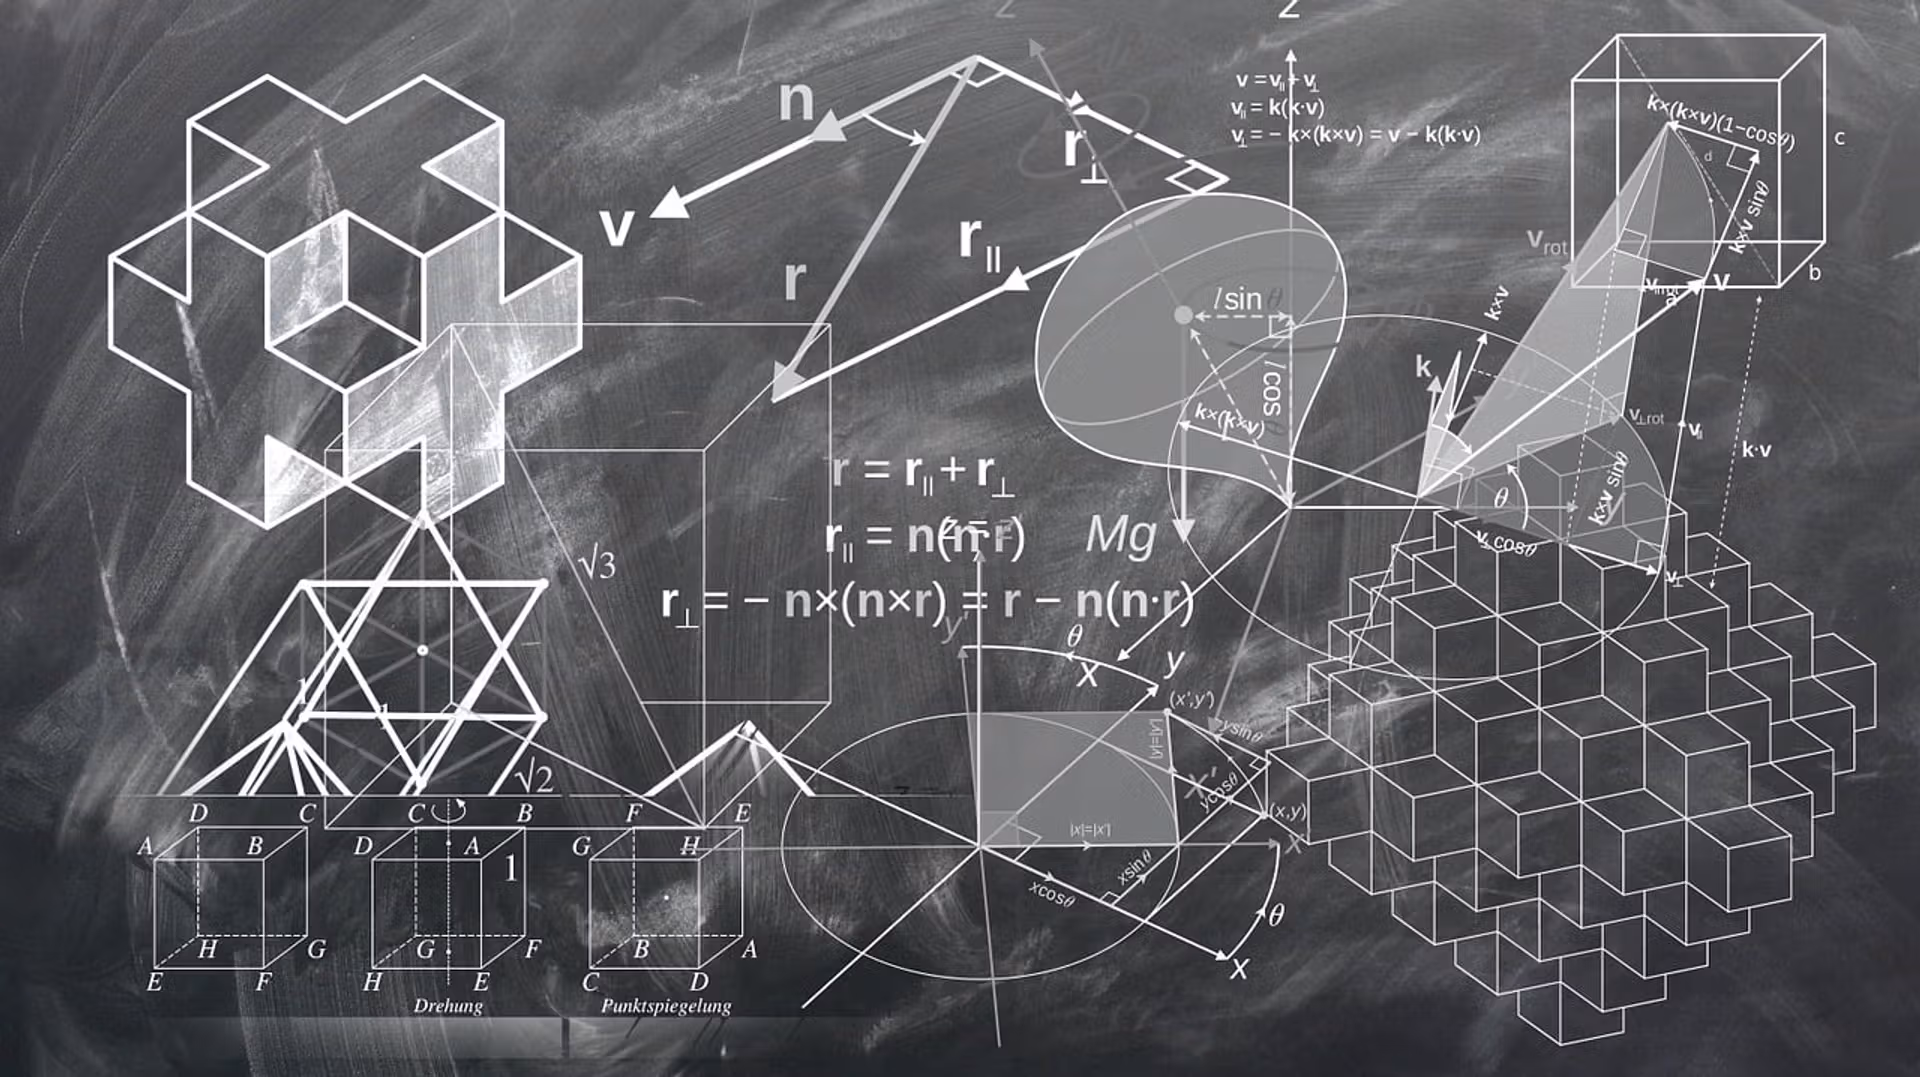 Z
Z
n
v
r
r⊥
r∥
v = v∥ + v⊥
v∥ = k(k·v)
v⊥ = − k×(k×v) = v − k(k·v)
k×(k×v)(1−cosθ)
c
d
k×v sinθ
b
v_rot
v
l sin θ
l cos θ
k×v
k
k×(k×v)
v⊥rot
v∥
k·v
θ
k×v sinθ
v⊥cosθ
v⊥
r = r∥ + r⊥
r∥ = n(n·r)
Mg
r⊥ = − n×(n×r) = r − n(n·r)
√3
1
1
√2
y'
θ
X
y
(x',y')
|y|=|y'|
ysinθ
x'
ycosθ
(x,y)
|x|=|x'|
x'
xcosθ
xsinθ
θ
x
D C C B F E
A B D A G H
1
H G G F B A
E F H E C D
Drehung Punktspiegelung